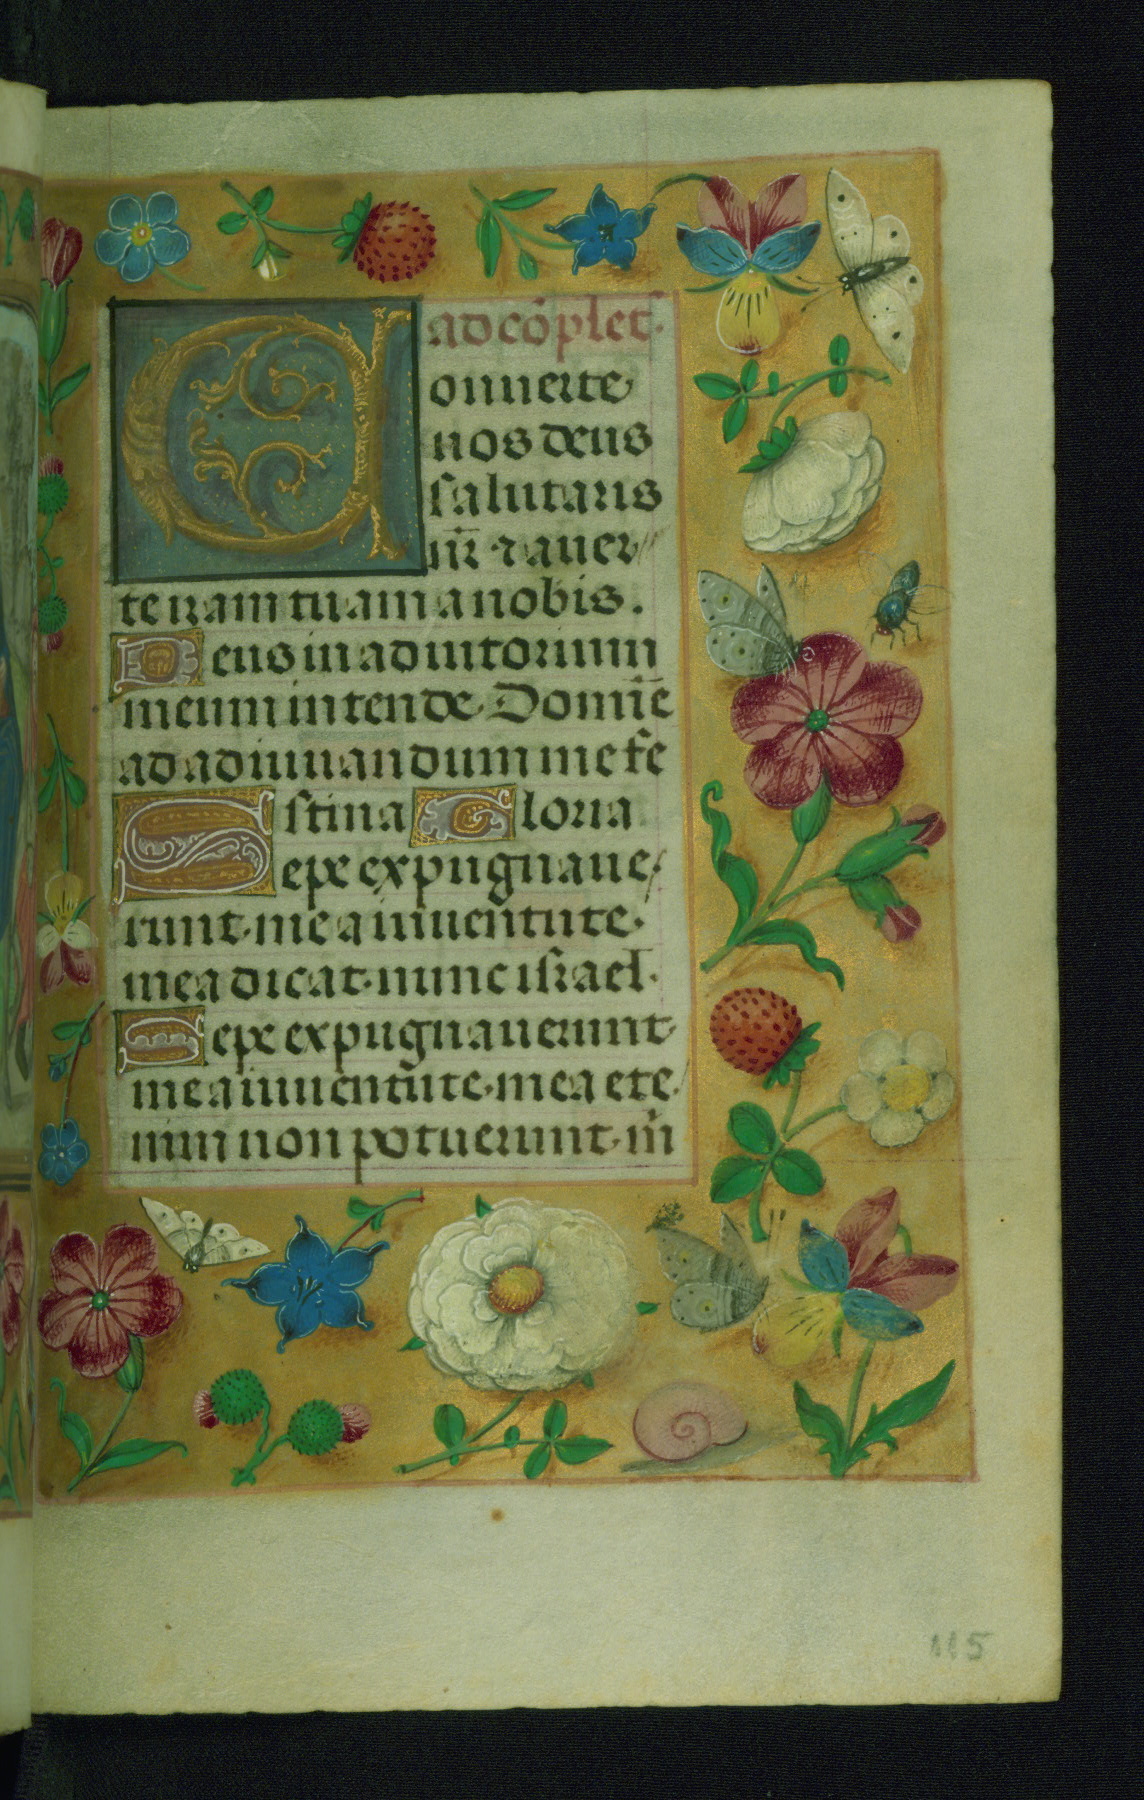 ad cōplet.
Conuerte
nos deus
salutaris
nr̄ · ⁊ auer
te iram tuam a nobis.
Deus in adiutorium
meum intende. Domīe
ad adiuuandum me fe
stina Gloria
Sepe expugnaue
runt me a iuuentute
mea dicat nunc israel.
Sepe expugnauerunt
me a iuuentute mea ete
nim non potuerunt m̄
115